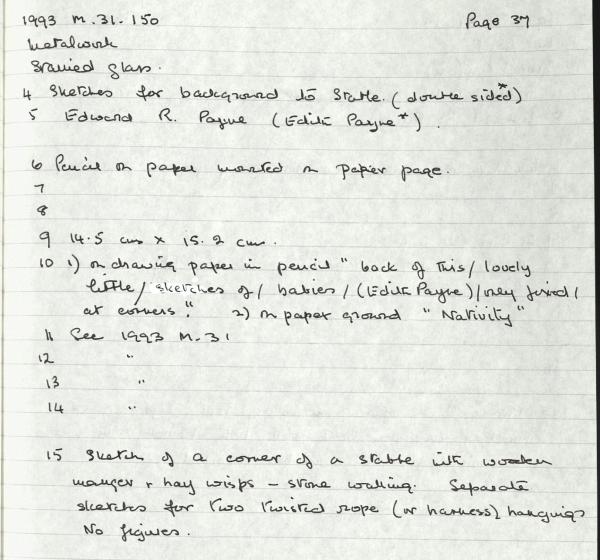 1993 M.31.150 Page 37
Metalwork
Stained glass.
4 Sketches for background to Stable. (double sided*)
5 Edward R. Payne (Edith Payne*).
6 Pencil on paper mounted on paper page.
7
8
9 14.5 cms x 15.2 cms.
10 1) on drawing paper in pencil "back of this/ lovely
little/ sketches of/ babies/ (Edith Payne)/ only fixed/
at corners". 2) on paper ground "Nativity"
11 See 1993 M.31
12 "
13 "
14 "
15 Sketch of a corner of a stable with wooden
manger + hay wisps - stone walling. Separate
sketches for two twisted rope (or harness) hangings
No figures.